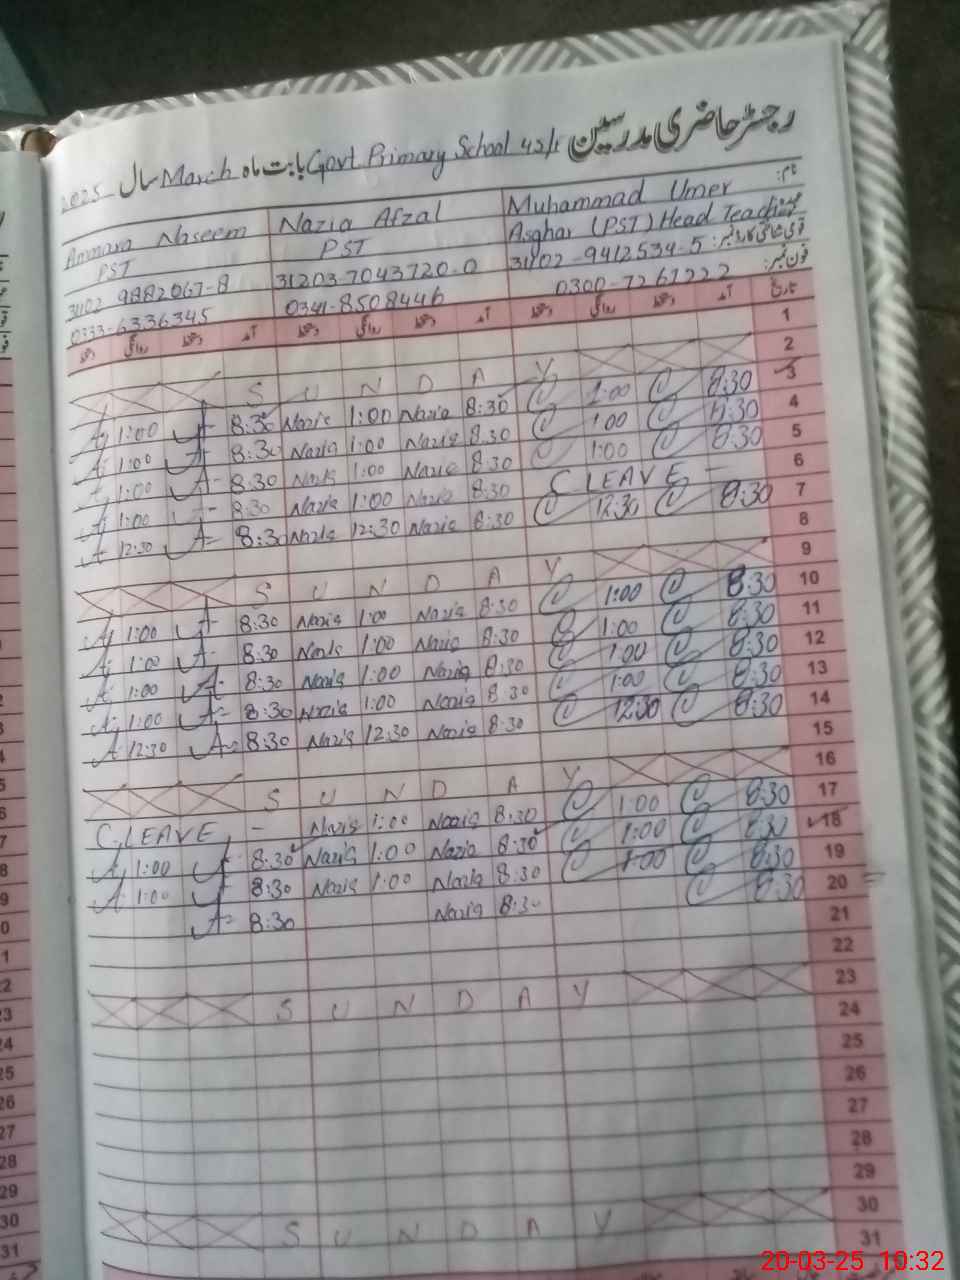 رجسٹر حاضری مدرسین Govt Primary School 42/1 بابت ماہ March سال 2025
نام: Muhammad Umer Nazia Afzal Ammara Naseem
Asghar (PST) Head Teacher PST PST
31102-9412534-5 31203-7043720-0 31102 9882067-8
فون نمبر: 0300-7261222 0341-8508446 0333-6336345
تاریخ آمد دستخط روانگی دستخط آمد دستخط روانگی دستخط آمد دستخط روانگی دستخط
1
2 S U N D A Y
3 8:30 1:00 8:30 Nazia 1:00 Nazia 8:30 1:00
4 8:30 1:00 8:30 Nazia 1:00 Nazia 8:30 1:00
5 8:30 1:00 8:30 Nazia 1:00 Nazia 8:30 1:00
6 C LEAVE - 8:30 Nazia 1:00 Nazia 8:30 1:00
7 8:30 12:30 8:30 Nazia 12:30 Nazia 8:30 12:30
8
9 S U N D A Y
10 8:30 1:00 8:30 Nazia 1:00 Nazia 8:30 1:00
11 8:30 1:00 8:30 Nazia 1:00 Nazia 8:30 1:00
12 8:30 1:00 8:30 Nazia 1:00 Nazia 8:30 1:00
13 8:30 1:00 8:30 Nazia 1:00 Nazia 8:30 1:00
14 8:30 12:30 8:30 Nazia 12:30 Nazia 8:30 12:30
15
16 S U N D A Y
17 8:30 1:00 8:30 Nazia 1:00 Nazia C.LEAVE -
18 8:30 1:00 8:30 Nazia 1:00 Nazia 8:30 1:00
19 8:30 1:00 8:30 Nazia 1:00 Nazia 8:30 1:00
20 8:30 8:30 Nazia 8:30
21
22
23 S U N D A Y
24
25
26
27
28
29
30 S U N D A Y
31
20-03-25 10:32